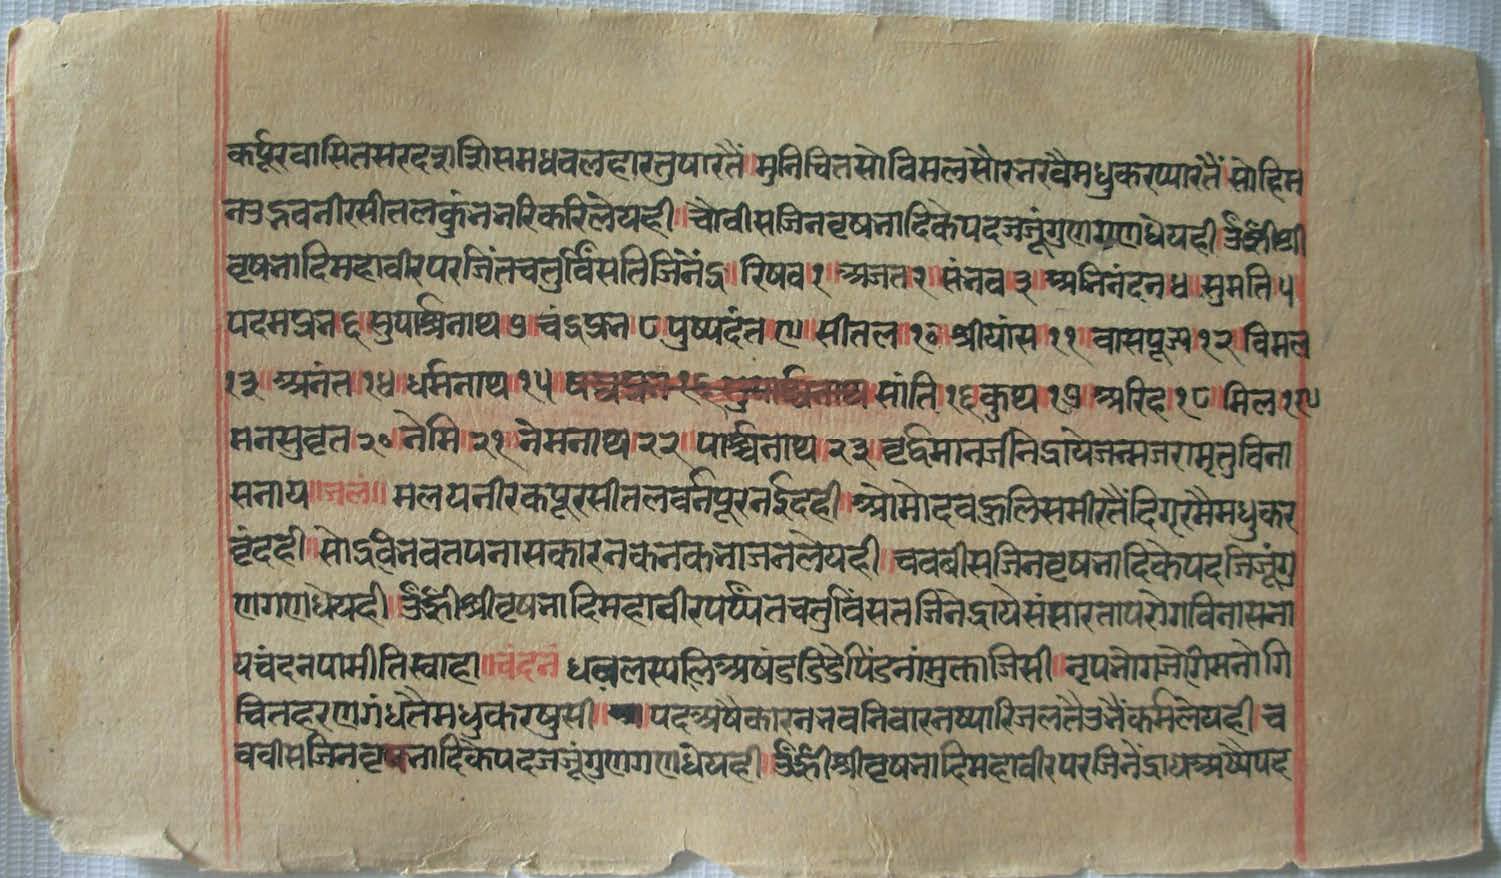 कर्पूरवासितसरदशशिसमधवलहारतुषारतैं ॥ मुनिचितसोविमलसौरनरवैमधुकरप्पारतैं ॥ सोहिम
नउद्भवनीरसीतलकुंननरिकरिलेयही ॥ चौवीसजिनवृषभादिकेपदजजूंगुणगणधेयही ॥ ॐ ह्रीं श्री
वृषभादिमहावीरपरजिंतचतुर्विंसतिजिनेंद्र ॥ रिषव १ ॥ अजत २ ॥ संभव ३ ॥ अभिनंदन ४ ॥ सुमति ५
पदमप्रभ ६ ॥ सुपार्श्वनाथ ७ ॥ चंद्रप्रभ ८ ॥ पुष्पदंत ९ ॥ सीतल १० ॥ श्रीयांस ११ ॥ वासपूज्य १२ ॥ विमल
१३ ॥ अनंत १४ ॥ धर्मनाथ १५ ॥ सांति १६ ॥ कुंथ १७ ॥ अरिह १८ ॥ मिल १९
मनसुवृत २० ॥ नेमि २१ ॥ नेमनाथ २२ ॥ पार्श्वनाथ २३ ॥ वृर्द्धमानजीनिंद्रायेजन्मजरामृतुविना
सनाय ॥ जलं ॥ मलयनीरकपूरसीतलवर्नपूरनइंदही ॥ आमोदवहुलिसमीरतैंदिगरमैमधुकर
वृंदही ॥ सोद्रवैनवतपनासकारनकनकभाजनलेयही ॥ चववीसजिनवृषभादिकेपदजिजूंगु
णगणधेयही ॥ ॐ ह्रीं श्रीवृषभादिमहावीरपर्य्यंतचतुर्विंसतजिनेंद्रायेसंसारतापरोगविनासना
यचंदनपामीतिस्वाहा ॥ चंदनं ॥ धवलसालिअषंडडिंडेपिंडनांमुक्ताजिसी ॥ नृपभोगजोगिमनोगि
चितहरणगंधतैमधुकरषुसी ॥ पदअषैकारनभवनिवारनथारिजलतैउभैंकर्मलेयही ॥ च
ववीसजिनवृषभादिकेपदजजूंगुणगणधेयही ॥ ॐ ह्रीं श्रीवृषभादिमहावीरपरजिनेंद्रायअष्यैपद